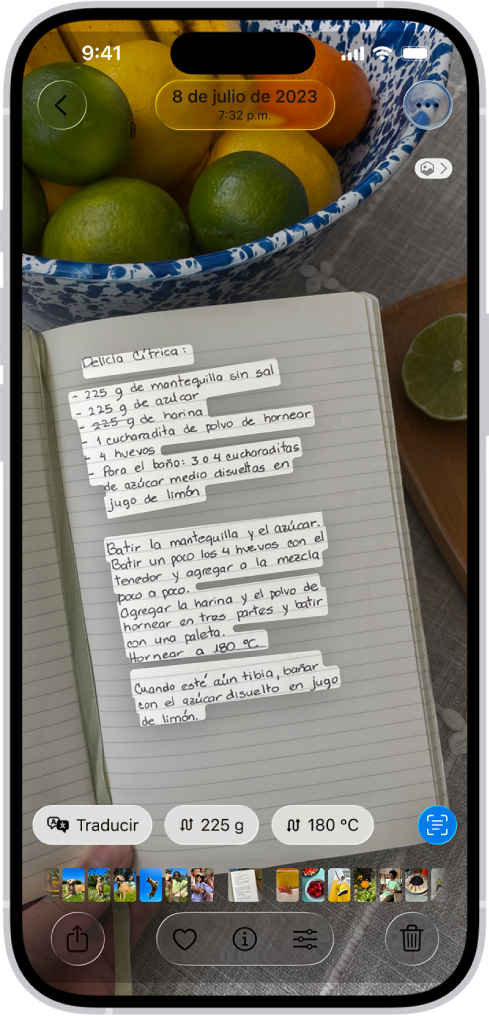 9:41
8 de julio de 2023
7:32 p.m.
Delicia Cítrica:
- 225 g de mantequilla sin sal
- 225 g de azúcar
- 225 g de harina
- 1 cucharadita de polvo de hornear
- 4 huevos
- Para el baño: 3 o 4 cucharaditas
de azúcar medio disueltas en
jugo de limón
Batir la mantequilla y el azúcar.
Batir un poco los 4 huevos con el
tenedor y agregar a la mezcla
poco a poco.
Agregar la harina y el polvo de
hornear en tres partes y batir
con una paleta.
Hornear a 180 °C.
Cuando esté aún tibia, bañar
con el azúcar disuelto en jugo
de limón.
Traducir
225 g
180 °C